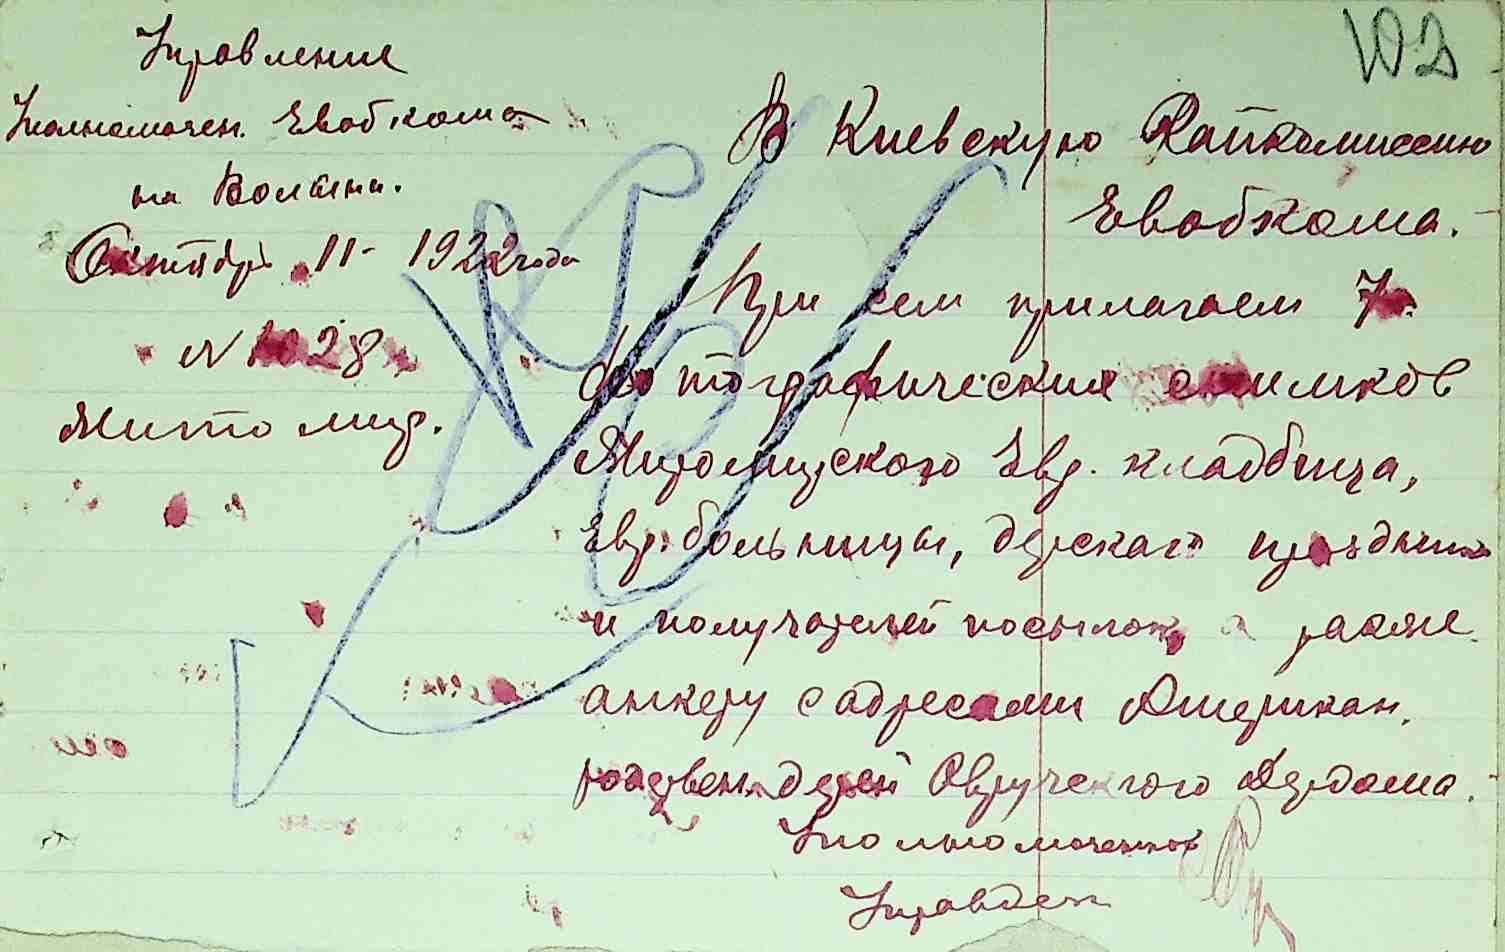 102
Управление
Уполномочен. Евобкома
на Волыни.
Октября 11 - 1922 года
№ 1028
Житомир.
В Киевскую Райкомиссию
Евобкома.
При сем прилагаем 7
фотографических снимков
Житомирского Евр. кладбища,
Евр. больницы, детского праздника
и получателей посылок, а также
анкету с адресами Американ.
родствен. детей Овручского Детдома.
Уполномоченный
Управдел